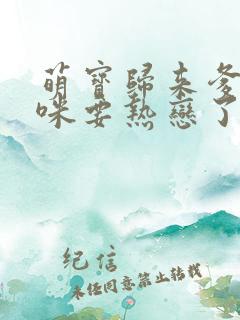 萌寶歸來爹
咪要熱戀了
紀信
未經同意禁止轉載